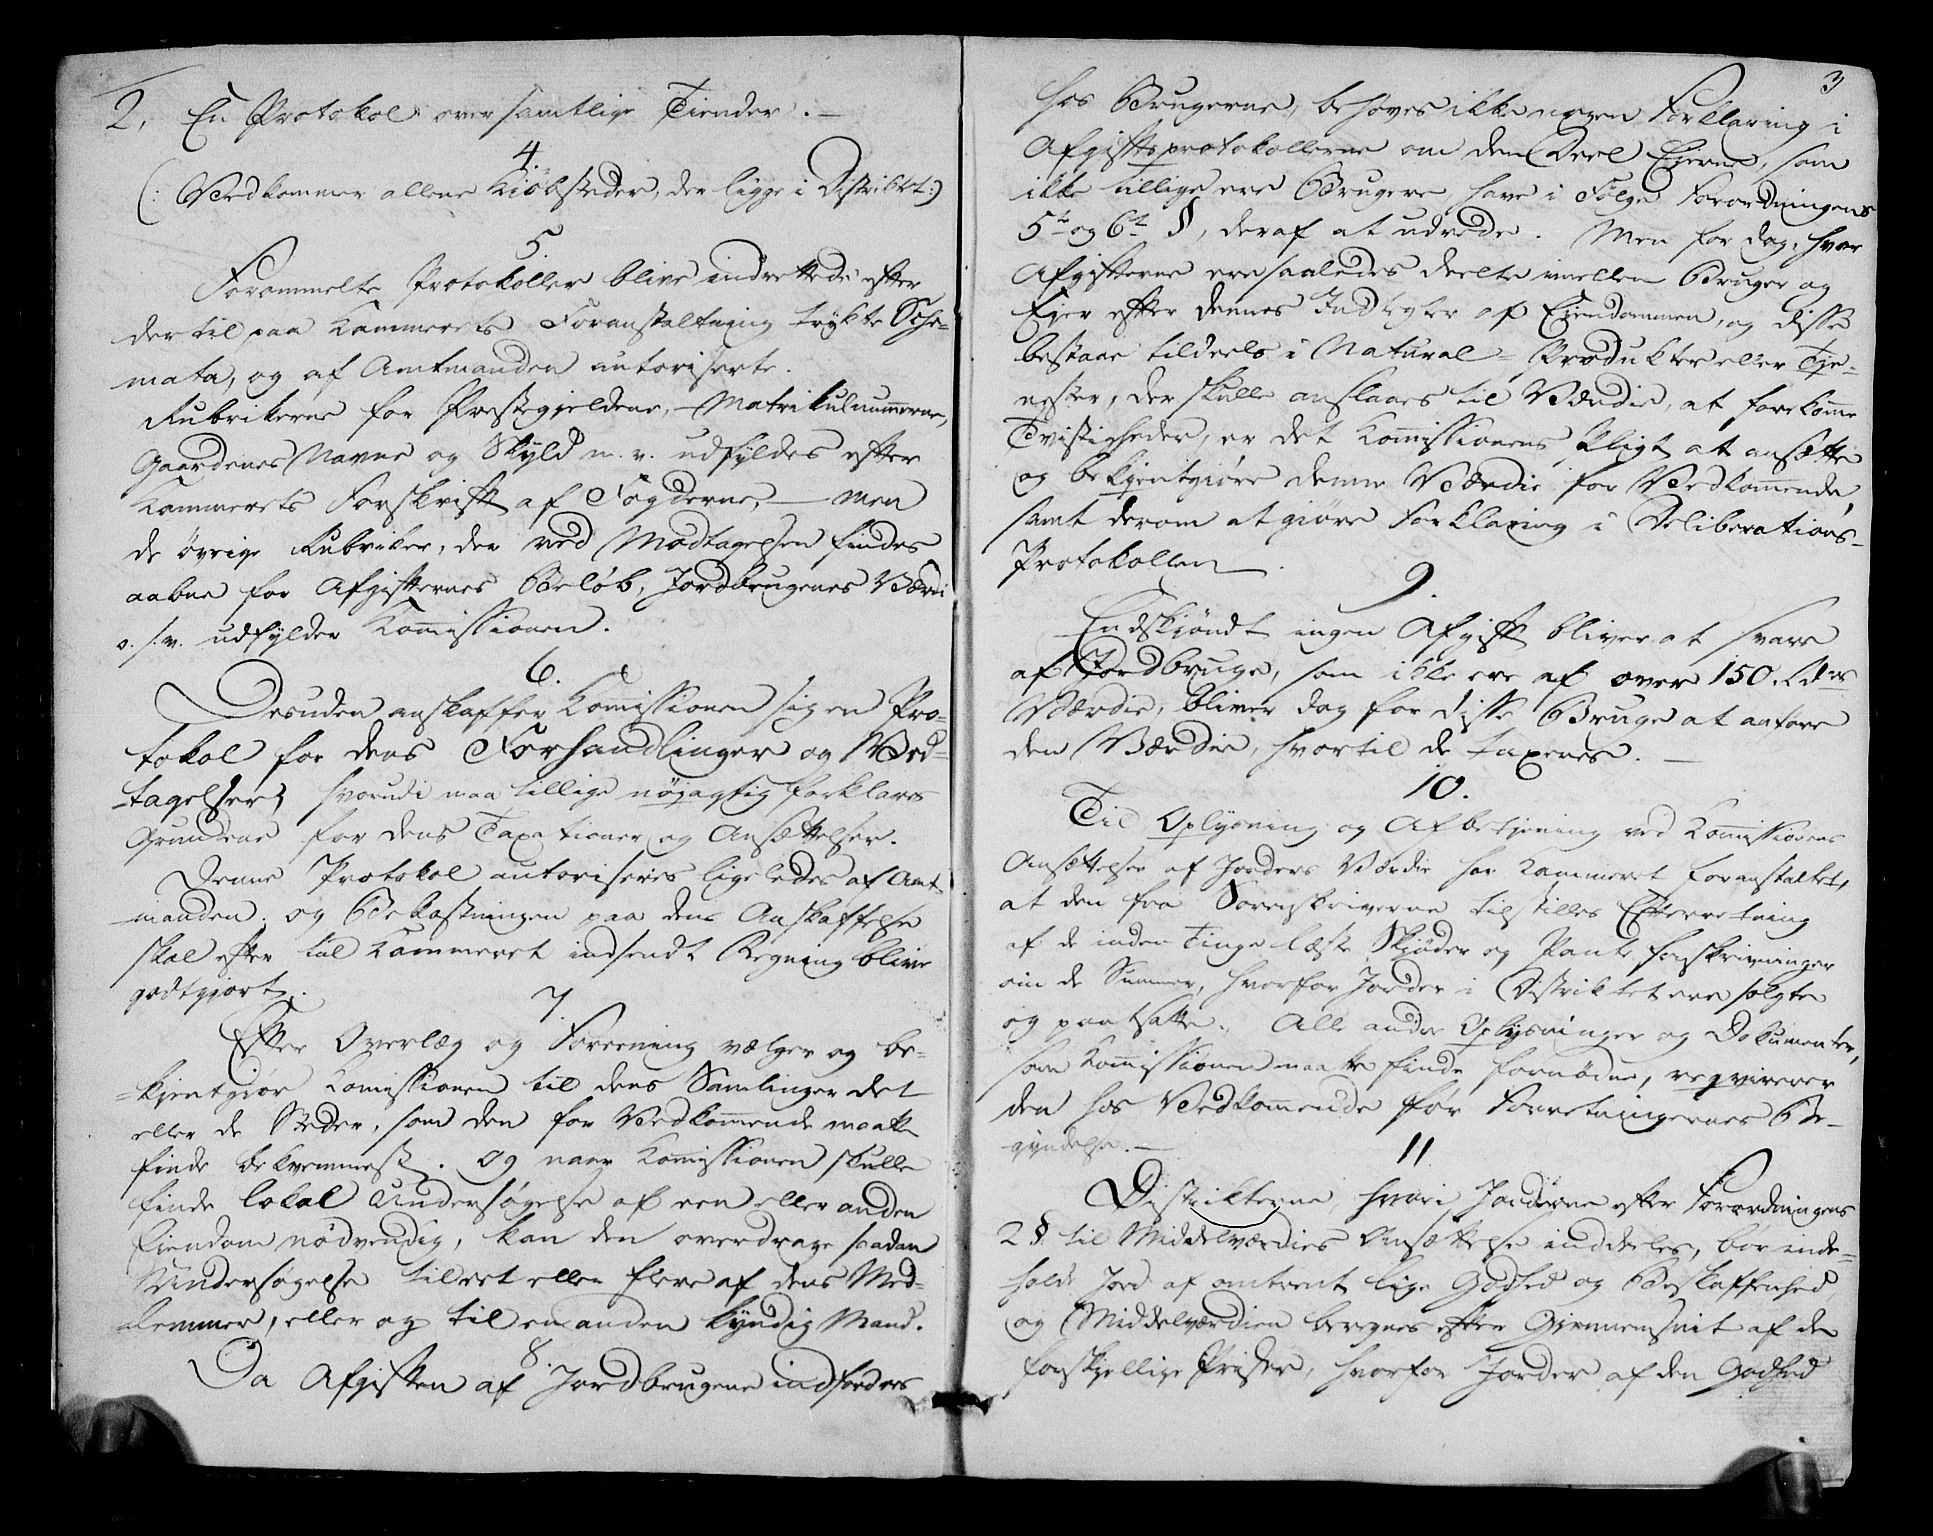 2, En Protokol over samtlige Tiender. —
4.
(: Vedkommer allene Kiøbsteder, der ligge i Distriktet :)
5.
Forommelte Protokoller blive indrettede efter
dertil paa Kammerets Foranstaltning trykte Sche-
mata, og af Amtmanden autoriserte.
Rubrikerne for Præstegjeldene, Matrikulnummerne,
Gaardenes Navne og Skyld m. v. udfyldes efter
Kammerets Forskrift af Fogderne, — men
de øvrige Rubriker, der ved Modtagelsen findes
aabne for Afgifternes Beløb, Jordbrugenes Værdi
o. s. v. udfylder Kom̄issionen.
6.
Desuden anskaffer Kom̄issionen sig en Pro-
tokol for dens Forhandlinger og Ved-
tagelser, hvorudi maa tillige nøjagtig forklares
Grundene for dens Taxationer og Ansættelser.
Denne Protokol autoriseres ligeledes af Amt-
manden, og Bekostningen paa dens Anskaffelse
skal efter til Kammeret indsendt Regning blive
godtgjort.
7.
Efter Overlæg og Foreening vælger og be-
kjentgiør Kom̄issionen til dens Samlinger det
eller de Steder, som den for Vedkom̄ende maatte
finde bekvemmest. Og naar Kom̄issionen skulle
finde lokal Undersøgelse af een eller anden
Eiendom nødvendig, kan den overdrage saadan
Undersøgelse til eet eller flere af dens Med-
lemmer, eller og til en anden kyndig Mand.
8.
Da Afgiften af Jordbrugene indfordres
3
hos Brugerne, behøves ikke nogen Forklaring i
Afgiftsprotokollerne om den Deel Eierne, som
ikke tillige ere Brugere have i Følge Forordningens
5te og 6te §, deraf at udrede. Men for dog, hvor
Afgifterne ere saaledes deelte imellem Bruger og
Ejer efter dennes Indtægter af Ejendommen, og disse
bestaae tildeels i Natural-Produkter eller Tje-
nester, der skulle anslaaes til Værdie, at forekom̄e
Tvistigheder, er det Kom̄issionens Pligt at ansætte
og bekjentgiøre denne Værdie for Vedkom̄ende,
samt derom at giøre Forklaring i Deliberations-
Protokollen.
9.
Endskjøndt ingen Afgift bliver at svare
af Jordbruge, som ikke ere af over 150 Rdrs
Værdie, bliver dog for disse Bruge at anføre
den Værdie, hvortil de taxeres. —
10.
Til Oplysning og Afbetjening ved Kom̄issionens
Ansættelser af Jorders Værdie har Kammeret foranstaltet,
at den fra Sorenskriverne tilstilles Efterretning
af de inden Tinge læste Skjøder og Pante forskrivninger
om de Summer, hvorfor Jorder i Distriktet ere solgte
og pantsatte. Alle andre Oplysninger og Dokumenter,
som Kom̄issionen maatte finde fornødne, reqvirerer
den hos Vedkom̄ende før Forretningernes Be-
gyndelse. —
11
Distrikterne, hvori Jorderne efter Forordningens
2 §. til Middelværdies Ansættelse inddeeles, bør inde-
holde Jord af omtrent lige Godhed og Beskaffenhed,
og Middelværdien beregnes efter Giennemsnit af de
forskjellige Priser, hvorfor Jorder af den Godhed